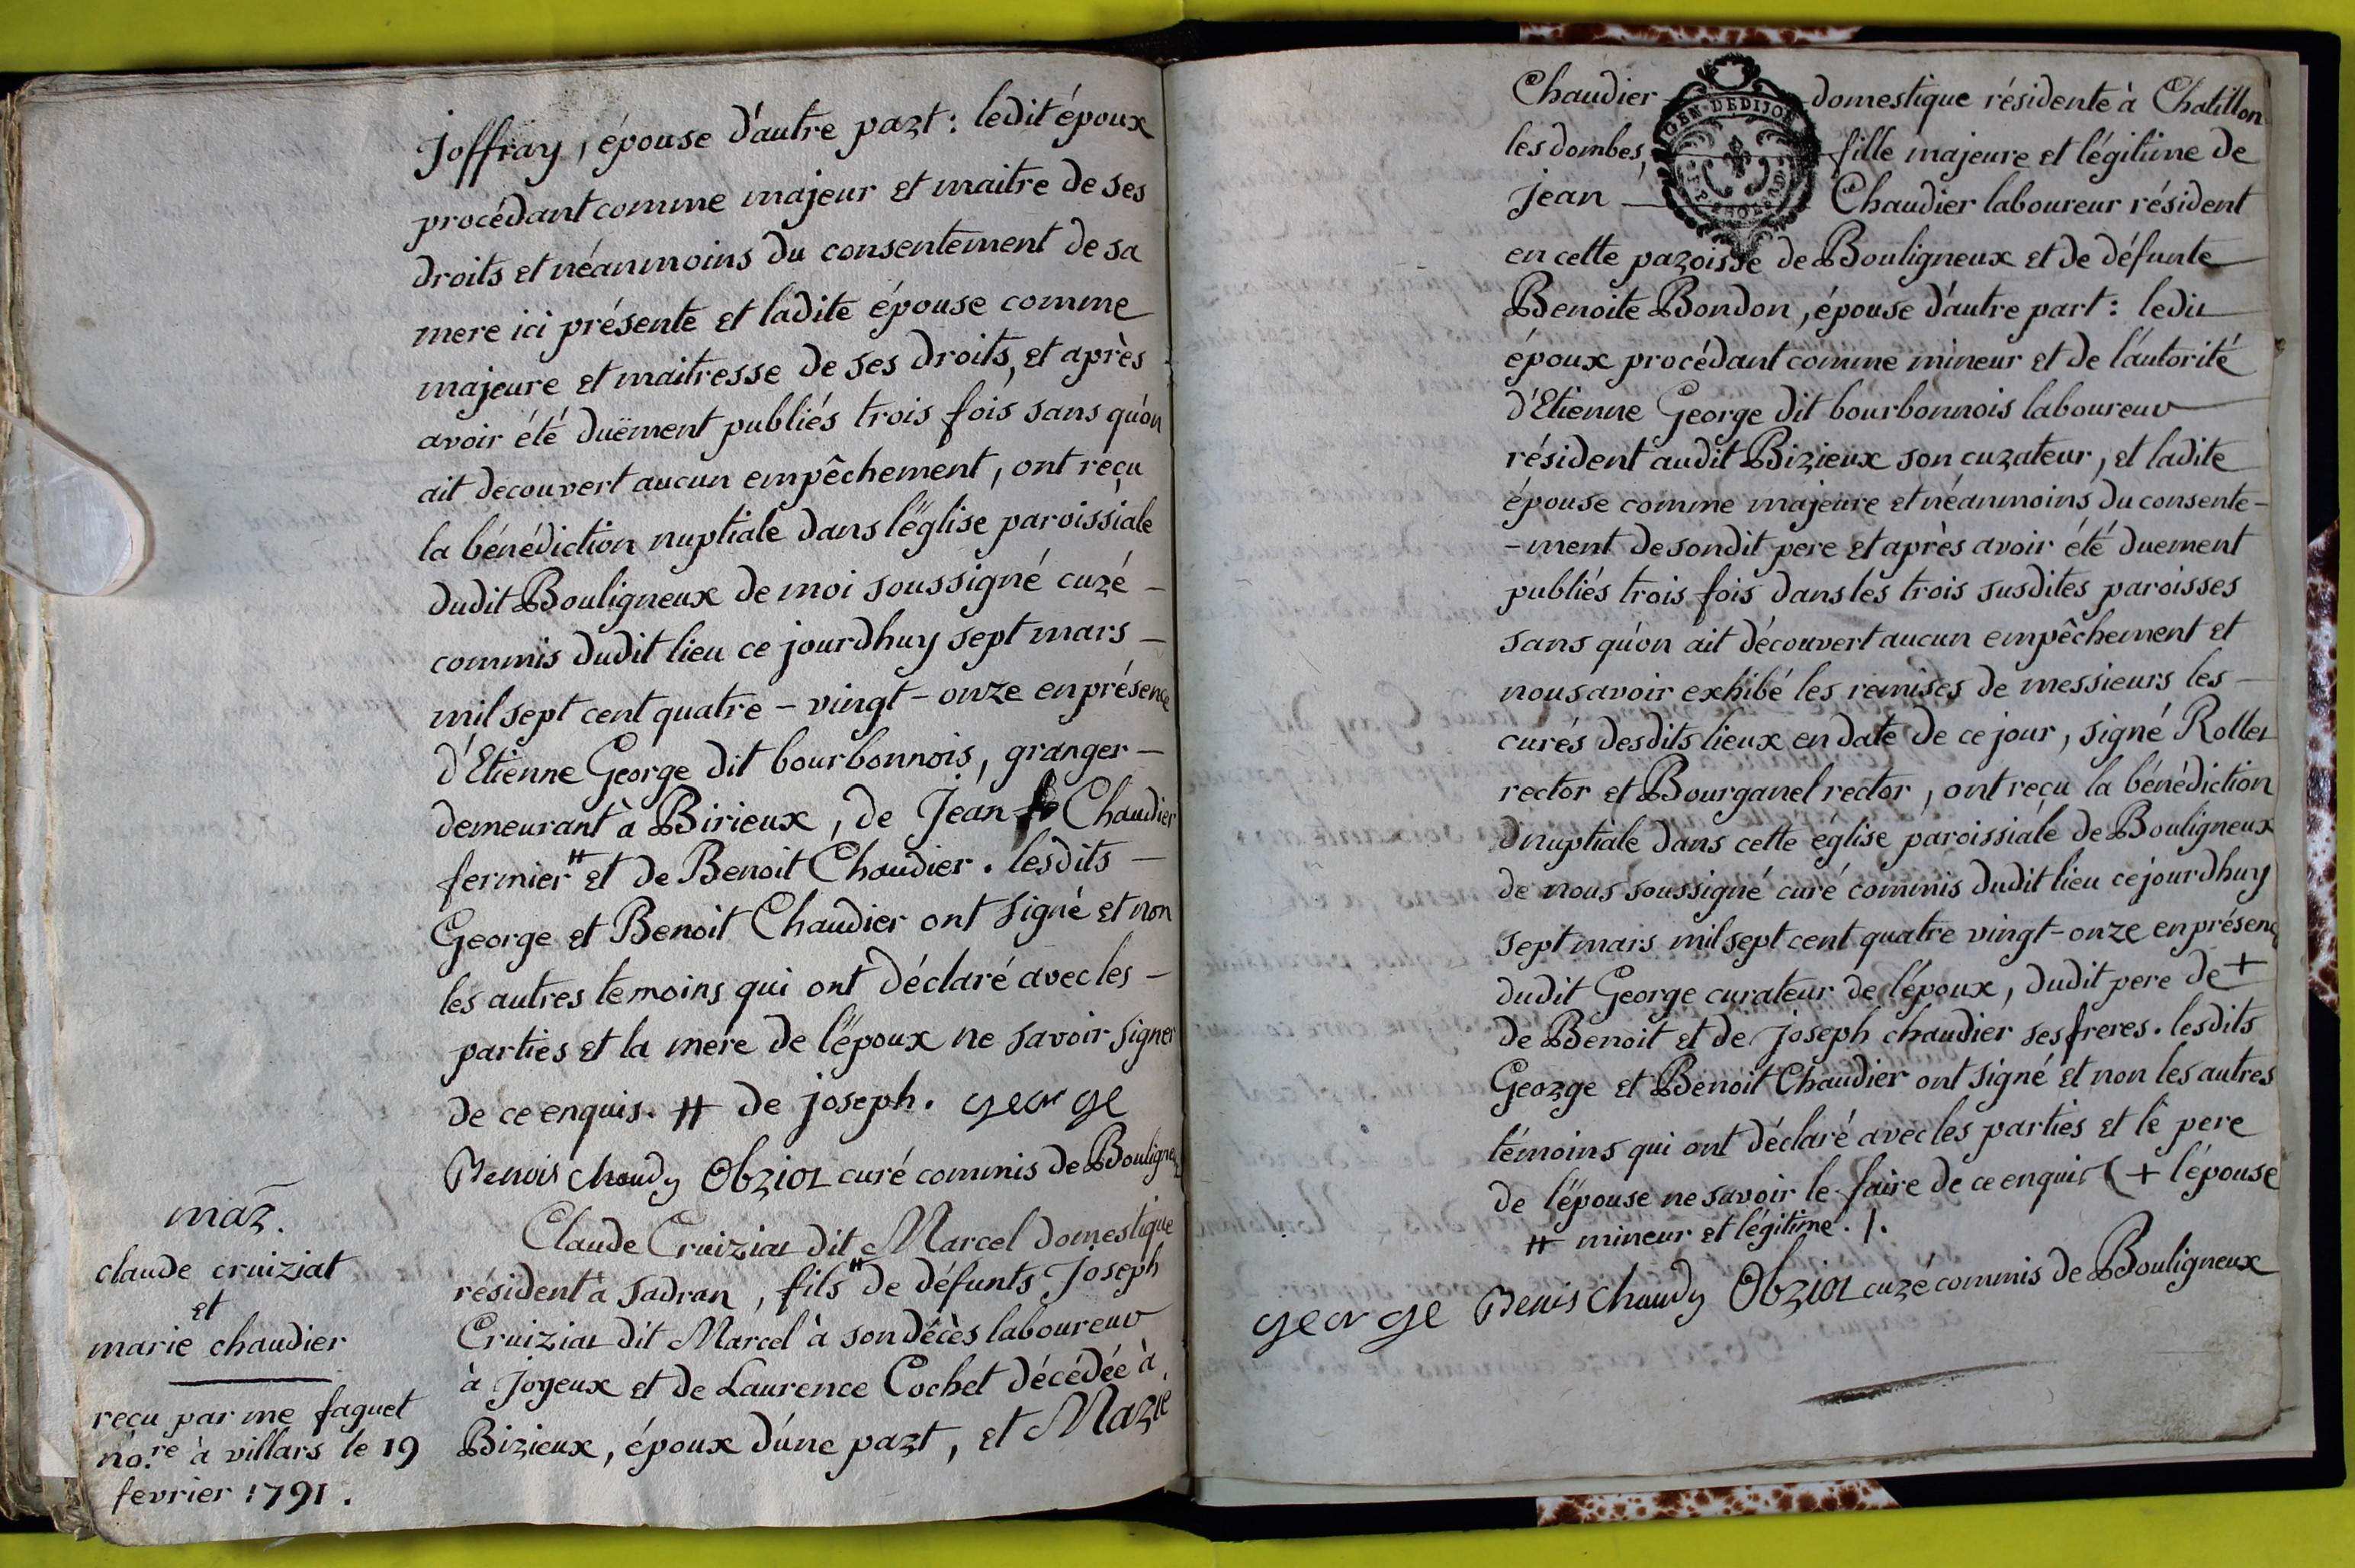 Joffray, épouse d'autre part : ledit époux
procédant comme majeur et maitre de ses
droits et néanmoins du consentement de sa
mere ici présente et ladite épouse comme
majeure et maitresse de ses droits, et après
avoir été duëment publiés trois fois sans qu'on
ait decouvert aucun empêchement, ont reçu
la bénédiction nuptiale dans l'église paroissiale
dudit Bouligneux de moi soussigné curé –
commis dudit lieu ce jourdhuy sept mars –
mil sept cent quatre – vingt – onze en présence
d'Etienne George dit bourbonnois, granger –
demeurant à Birieux, de Jean Chaudier
fermier # et de Benoit Chaudier. lesdits –
George et Benoit Chaudier ont signé et non
les autres temoins qui ont déclaré avec les –
parties et la mere de l'époux ne savoir signer
de ce enquis. # de joseph. george
Benois chaudy Obriot curé commis de Bouligneux
mar.
claude cruiziat
et
marie chaudier
reçu par me faguet
no.re à villars le 19
fevrier 1791.
Claude Cruiziat dit Marcel domestique
résident à sadran, fils # de défunts Joseph
Cruiziat dit Marcel à son décès laboureur
à Joyeux et de Laurence Cochet décédée à
Birieux, époux d'une part, et Marie
Chaudier domestique résidente à Chatillon
les dombes, fille majeure et légitime de
jean Chaudier laboureur résident
GEN. DE DIJON
en cette paroisse de Bouligneux et de défunte
Benoite Bondon, épouse d'autre part : ledit
époux procédant comme mineur et de l'autorité
d'Etienne George dit bourbonnois laboureur
résident audit Birieux son curateur, et ladite
épouse comme majeure et néanmoins du consente-
-ment de sondit pere et après avoir été duement
publiés trois fois dans les trois susdites paroisses
sans qu'on ait découvert aucun empêchement et
nous avoir exhibé les remises de messieurs les –
curés desdits lieux en date de ce jour, signé Rollet
rector et Bourganel rector, ont reçu la bénédiction
nuptiale dans cette église paroissiale de Bouligneux
de nous soussigné curé commis dudit lieu ce jourdhuy
sept mars mil sept cent quatre vingt-onze en présence
dudit George curateur de l'époux, dudit pere de +
de Benoit et de joseph chaudier ses freres. lesdits
George et Benoit Chaudier ont signé et non les autres
témoins qui ont déclaré avec les parties et le pere
de l'épouse ne savoir le faire de ce enquis ( + l'épouse
# mineur et légitime. /.
george Benois chaudy Obriot curé commis de Bouligneux